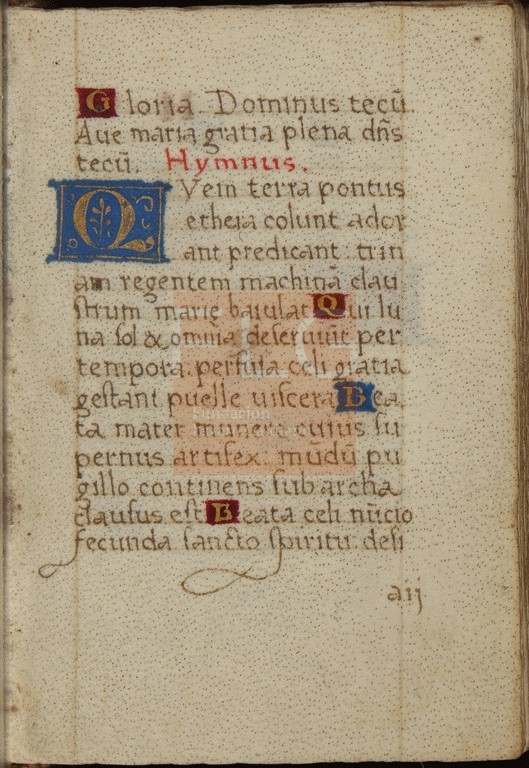 Gloria. Dominus tecū.
Aue maria gratia plena dn̄s
tecū. Hymnus.
Quem terra pontus
ethera colunt ador
ant predicant: trin
am regentem machinā clau
strum marie baiulat Qui lu
na sol & omnia deseruiūt per
tempora. perfusa celi gratia
gestant puelle uiscera Bea
ta mater munere cuius su
pernus artifex: mūdū pu
gillo continens sub archa
clausus est Beata celi nūcio
fecunda sancto spiritu: desi
aij
Fundación